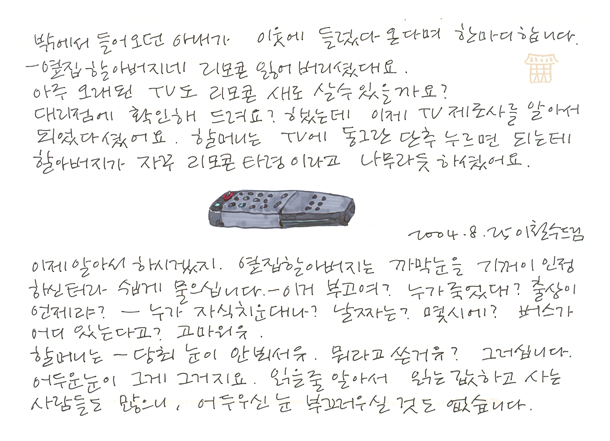 밖에서 들어오던 아내가 이웃에 들렀다 온다며 한마디 합니다.
-옆집 할아버지네 리모콘 잃어 버리셨대요.
아주 오래된 TV도 리모콘 새로 살 수 있을까요?
대리점에 확인해 드려요? 했는데 이제 TV 제조사를 알아서
되었다셨어요. 할머니는 TV에 동그란 단추 누르면 되는데
할아버지가 자꾸 리모콘 타령이라고 나무라듯 하셨어요.
2004.8.25 이철수드림
이제 알아서 하시겠지. 옆집할아버지는 까막눈을 기꺼이 인정
하신터라 쉽게 물으십니다.-이거 부고여? 누가 죽었대? 출상이
언제랴? - 누가 자식치운대나? 날짜는? 몇시에? 버스가
어디 있는다고? 고마워유.
할머니는 - 당최 눈이 안뵈서유. 뭐라고 쓴거유? 그러십니다.
어두운눈이 그게 그거지요. 읽을줄 알아서 읽는 값하고 사는
사람들도 많으니, 어두우신 눈 부끄러우실 것도 없습니다.